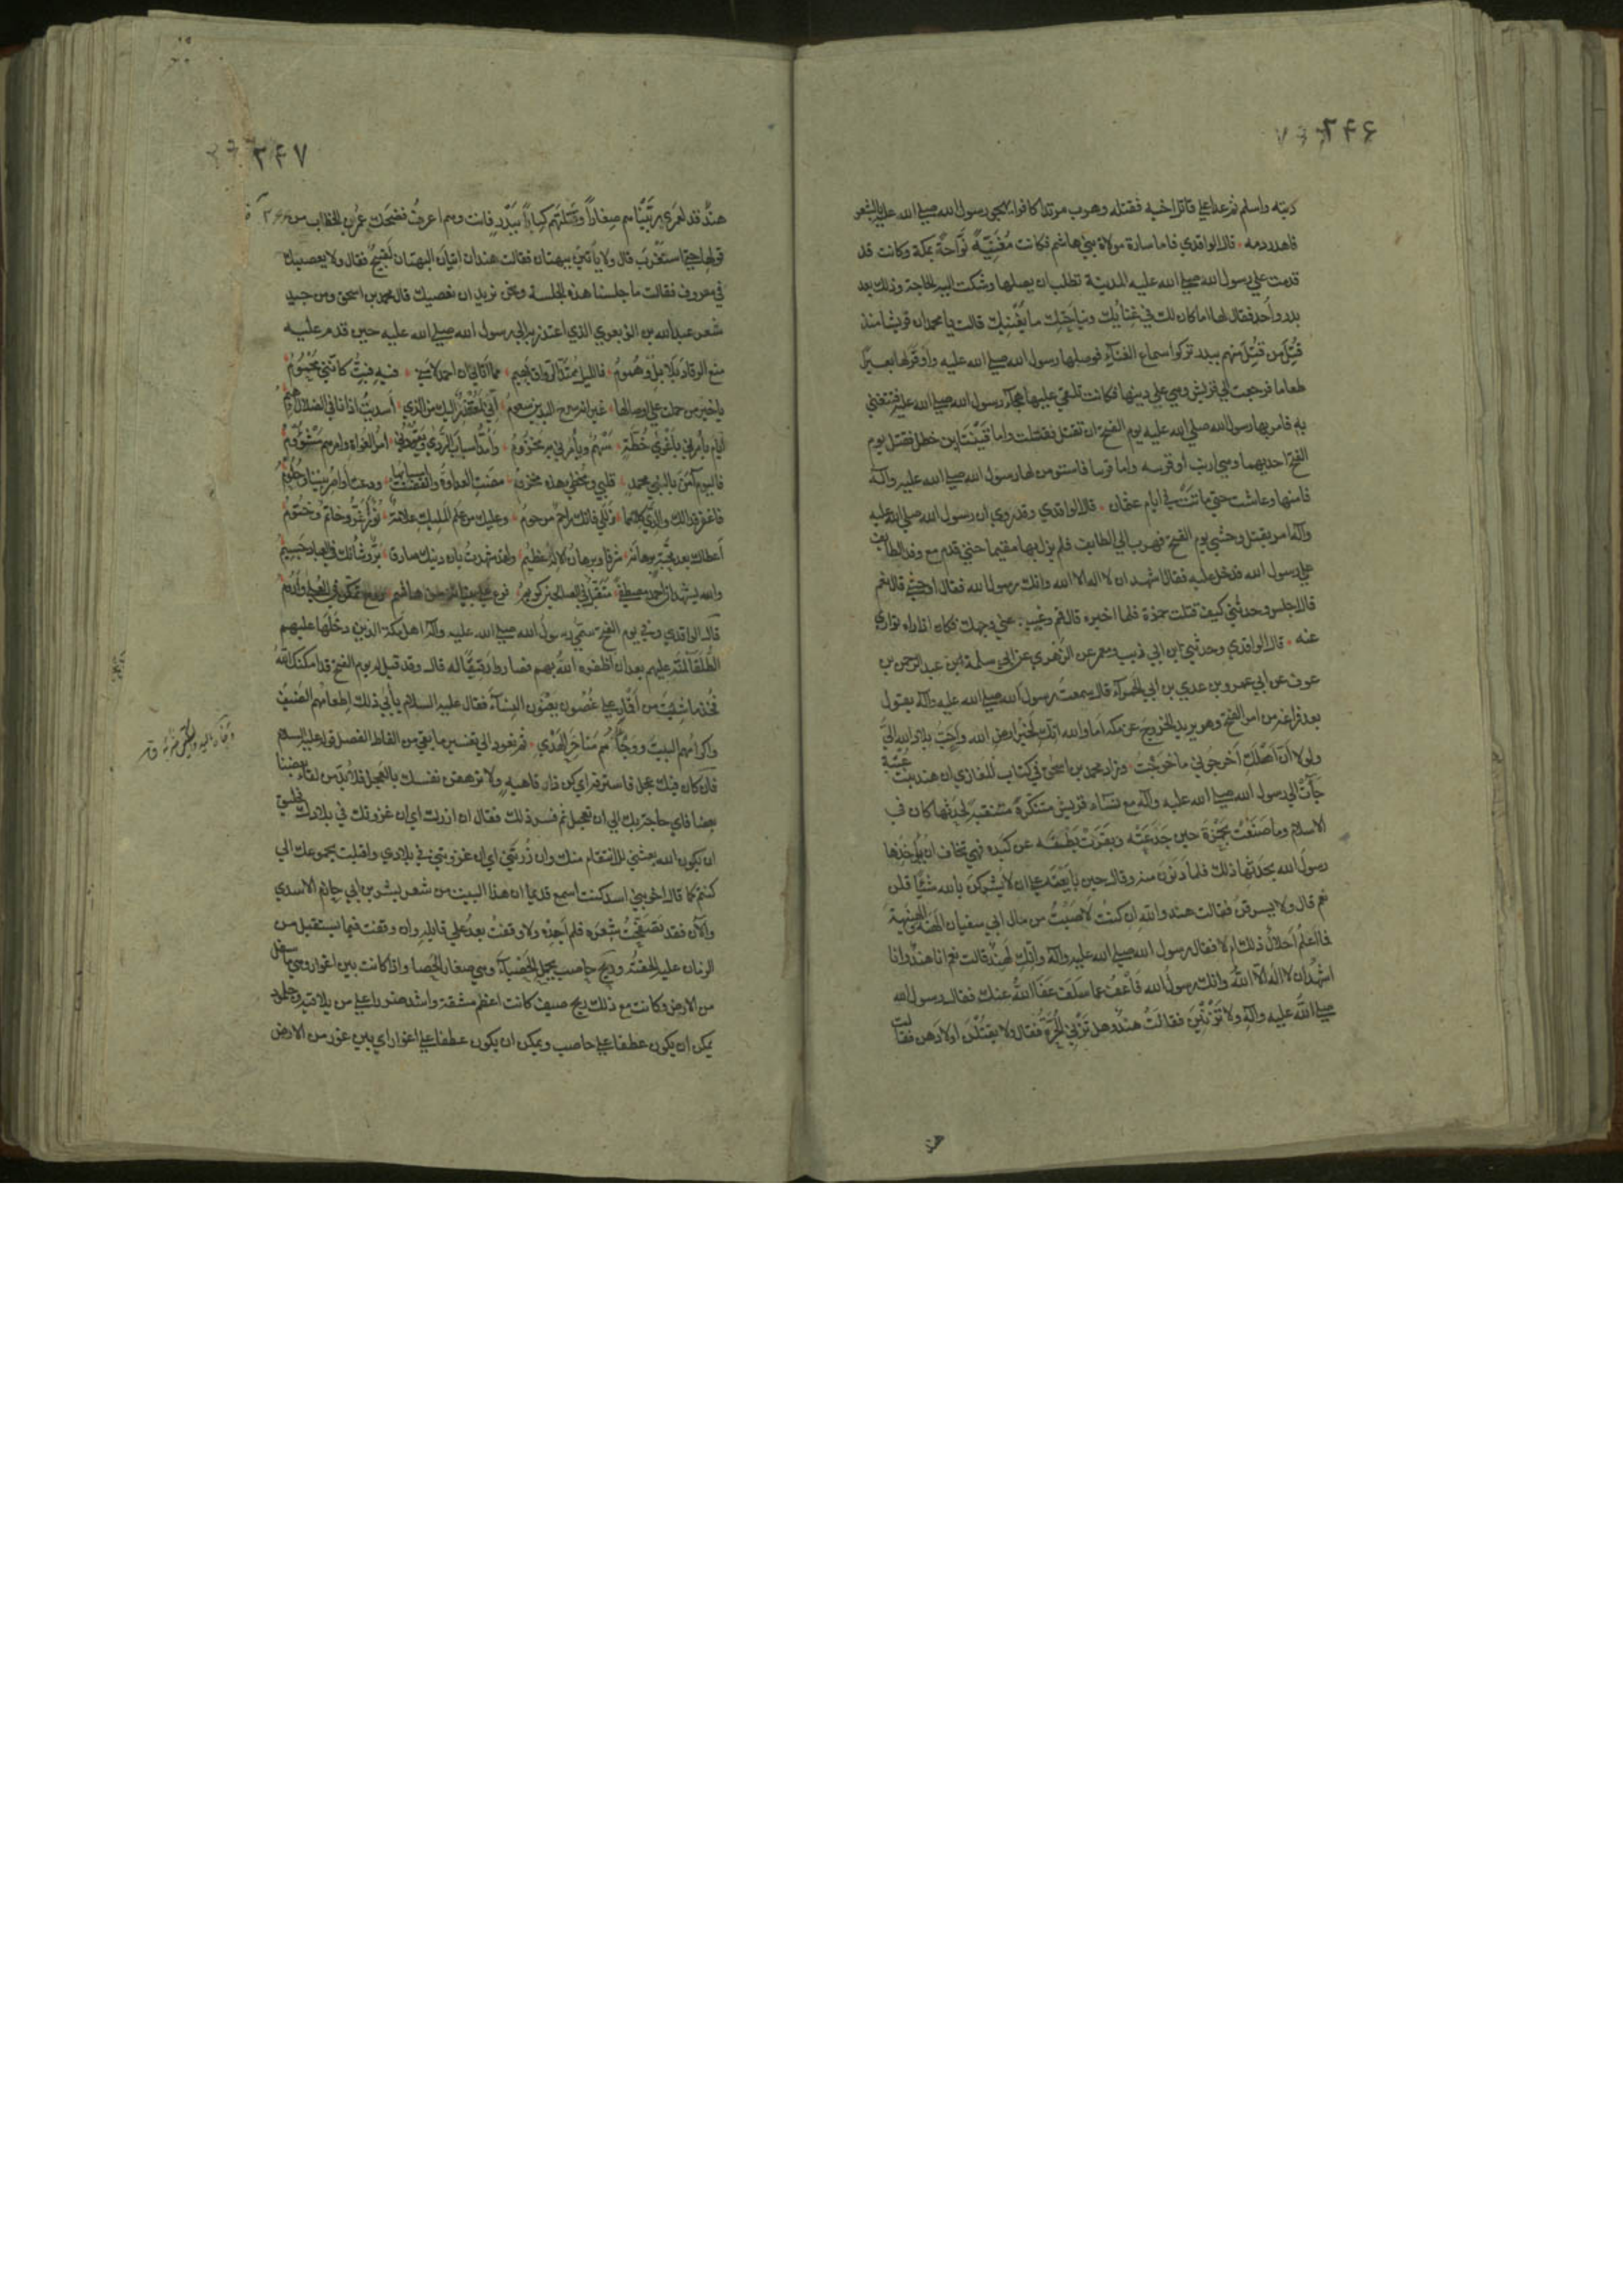 ٢٤٦
ديته واسلم ثم عدا على قاتل اخيه فقتله وهرب مرتدا كافرا يهجو رسول الله صلى الله عليه بالشعر
فاهدر دمه قال الواقدي فاما سارة مولاة بني هاشم فكانت مُغَنِّيَةً نَوَّاحَةً بمكة وكانت قد
قدمت على رسول الله صلى الله عليه المدينة تطلب ان يصلها وشكت اليه الحاجة وذلك بعد
بدر وأُحد فقال لها اما كان لك في غِنائِك ونِياحَتِك ما يُغْنِيك قالت يا محمد ان قريشا منذ
قُتِل من قُتِل منهم ببدر تركوا استماع الغناء فوصلها رسول الله صلى الله عليه واوقر لها بعيرًا
طعاما فرجعت الى قريش وهي على دينها فكانت تلقي عليها هجاء رسول الله صلى الله عليه فتغني
به فامر بها رسول الله صلى الله عليه يوم الفتح ان تقتل فقتلت واما قَيْنَتَا ابن خطل فقتل يوم
الفتح احديهما وهي ارنب أو قرسه واما قرسا فاستؤمن لها رسول الله صلى الله عليه وآله
فامنها وعاشت حتى ماتت في ايام عثمان قال الواقدي وقد روي ان رسول الله صلى الله عليه
وآله امر بقتل وحشي يوم الفتح فهرب الى الطايف فلم يزل بها مقيما حتى قدم مع وفد الطايف
على رسول الله فدخل عليه فقال اشهد ان لا اله الا الله وانك رسول الله فقال أوحشي قال نعم
قال اجلس وحدثني كيف قتلت حمزة فلما اخبره قال قم وغَيِّب عني وجهك فكان اذا راه توارى
عنه قال الواقدي وحدثني ابن ابي ذيب ومعمر عن الزهري عن ابي سلمة بن عبد الرحمن بن
عوف عن ابي عمرو بن عدي بن ابي الحمراء قال سمعت رسول الله صلى الله عليه وآله يقول
بعد فراغه من امر الفتح وهو يريد الخروج عن مكة اما والله انك لَخَيْر ارض الله وأحبّ بلاد الله اليَّ
ولولا أنّ اهلكِ أخرجوني ما خرجت وزاد محمد بن اسحق في كتاب المغازي ان هند بنت عُتبة
جآت الى رسول الله صلى الله عليه وآله مع نساء قريش متنكرة متنقبة لحدثها كان في
الاسلام وما صَنَعَتْ بحَمْزَةَ حين جَدَعَتْه وبَقَرَتْ بَطْنَه عن كبده فهي تخاف ان يأخذها
رسول الله بحدثها ذلك فلما دَنَوْن منه وقال حين بايَعْنَه على ان لا يشركن بالله شيئا قلن
نعم قال ولا يسرقن فقالت هند والله ان كنتُ لَأُصيبُ من مال ابي سفيان الهنة والهُنيهة
فما أعلم أحلال ذلك ام لا فقال رسول الله صلى الله عليه وآله وانك لهند قالت نعم انا هند وانا
اشهد ان لا اله الا الله وانك رسول الله فاعْفُ عما سلف عفا الله عنك فقال رسول الله
صلى الله عليه وآله ولا تزنين فقالت هند وهل تزني الحرّة فقال ولا يقتلن اولادهن فقالت
هند
٢٤٧
هند قد لعمري ربّيناهم صغارا وقتلتهم كبارا ببدر فانت وهم اعرف فضحك عمر بن الخطاب من
قولها حتى استغرب قال ولا يأتين ببهتان فقالت هند ان اتيان البهتان لقبيح فقال ولا يعصينك
في معروف فقالت ما جلسنا هذه الجلسة ونحن نريد ان نعصيك قال محمد بن اسحق ومن جيد
شعر عبد الله بن الزبعري الذي اعتذر به الى رسول الله صلى الله عليه حين قدم عليه
منع الرقاد بلابل وهموم فالليل ممتدّ الرواق بهيم مما اتاني ان احمد لامني فيه فبتُّ كانني محموم
يا خير من حملت على اوصالها عيرانة سرح اليدين سعوم انّي لمعتذر اليك من الذي أسديت اذ انا في الضلال اهيم
ايام يأمرني باغوى خطة سهم ويأمرني به مخزوم وأمدّ اسباب الردى ويقودني امر الغواة وامرهم مشؤوم
فاليوم آمن بالنبي محمد قلبي ومخطئ هذه محروم مضت العداوة وانقضت اسبابها ودعت أواصر بيننا وحلوم
فاغفر فدى لك والديّ كلاهما زللي فانك راحم مرحوم وعليك من علم المليك علامة نور أغرّ وخاتم مختوم
أعطاك بعد محبّة برهانه شرفا وبرهان الاله عظيم ولقد شهدت بان دينك صادق برّ وشأنك في العباد جسيم
والله يشهد ان احمد مصطفى متقبّل في الصالحين كريم فرع
قال الواقدي وفي يوم الفتح سمّى رسول الله صلى الله عليه وآله اهل مكة الذين دخلها عليهم
الطلقا لمنّه عليهم بعد ان اظفره الله بهم فصاروا رقيقًا له قال وقد قيل له يوم الفتح قد امكنك الله
فخذ ما شيت من أقمار على غصون يعنون النساء فقال عليه السلام يأبى ذلك اطعامهم الضيف
واكرامهم البيت ووجاؤهم مناحر الهدي ثم نعود الى تفسير ما بقي من الفاظ الفصل قوله عليه السلام
فان كان فيك عجل فاسترفه اي كن ذا رفاهية ولا ترهقن نفسك بالعجل فلا بدّ من لقاء بعضنا
بعضا فاي حاجة بك الى ان تعجل ثم فسر ذلك فقال ان ازرك اي ان غزوتك في بلادك فخليق
ان يكون الله بعثني للانتقام منك وان زرتني اي ان غزوتني في بلادي واقبلت بجموعك الي
كنتم كما قال اخو بني اسد كنت اسمع قديما ان هذا البيت من شعر بشر بن ابي خازم الاسدي
والآن فقد تصفحت شعره فلم أجده ولا وقفت بعد على قايله وان وقفت فيما يستقبل من
الزمان عليه الحقته وريح حاصب تحمل الحصباء وهي صغار الحصا واذا كانت بين اغوار وهي ما سفل
من الارض وكانت مع ذلك ريح صيف كانت اعظم مشقة واشد ضررا على من يلاقيه وجلمود
يمكن ان يكون عطفا على حاصب ويمكن ان يكون عطفا على اغوار اي بين غور من الارض